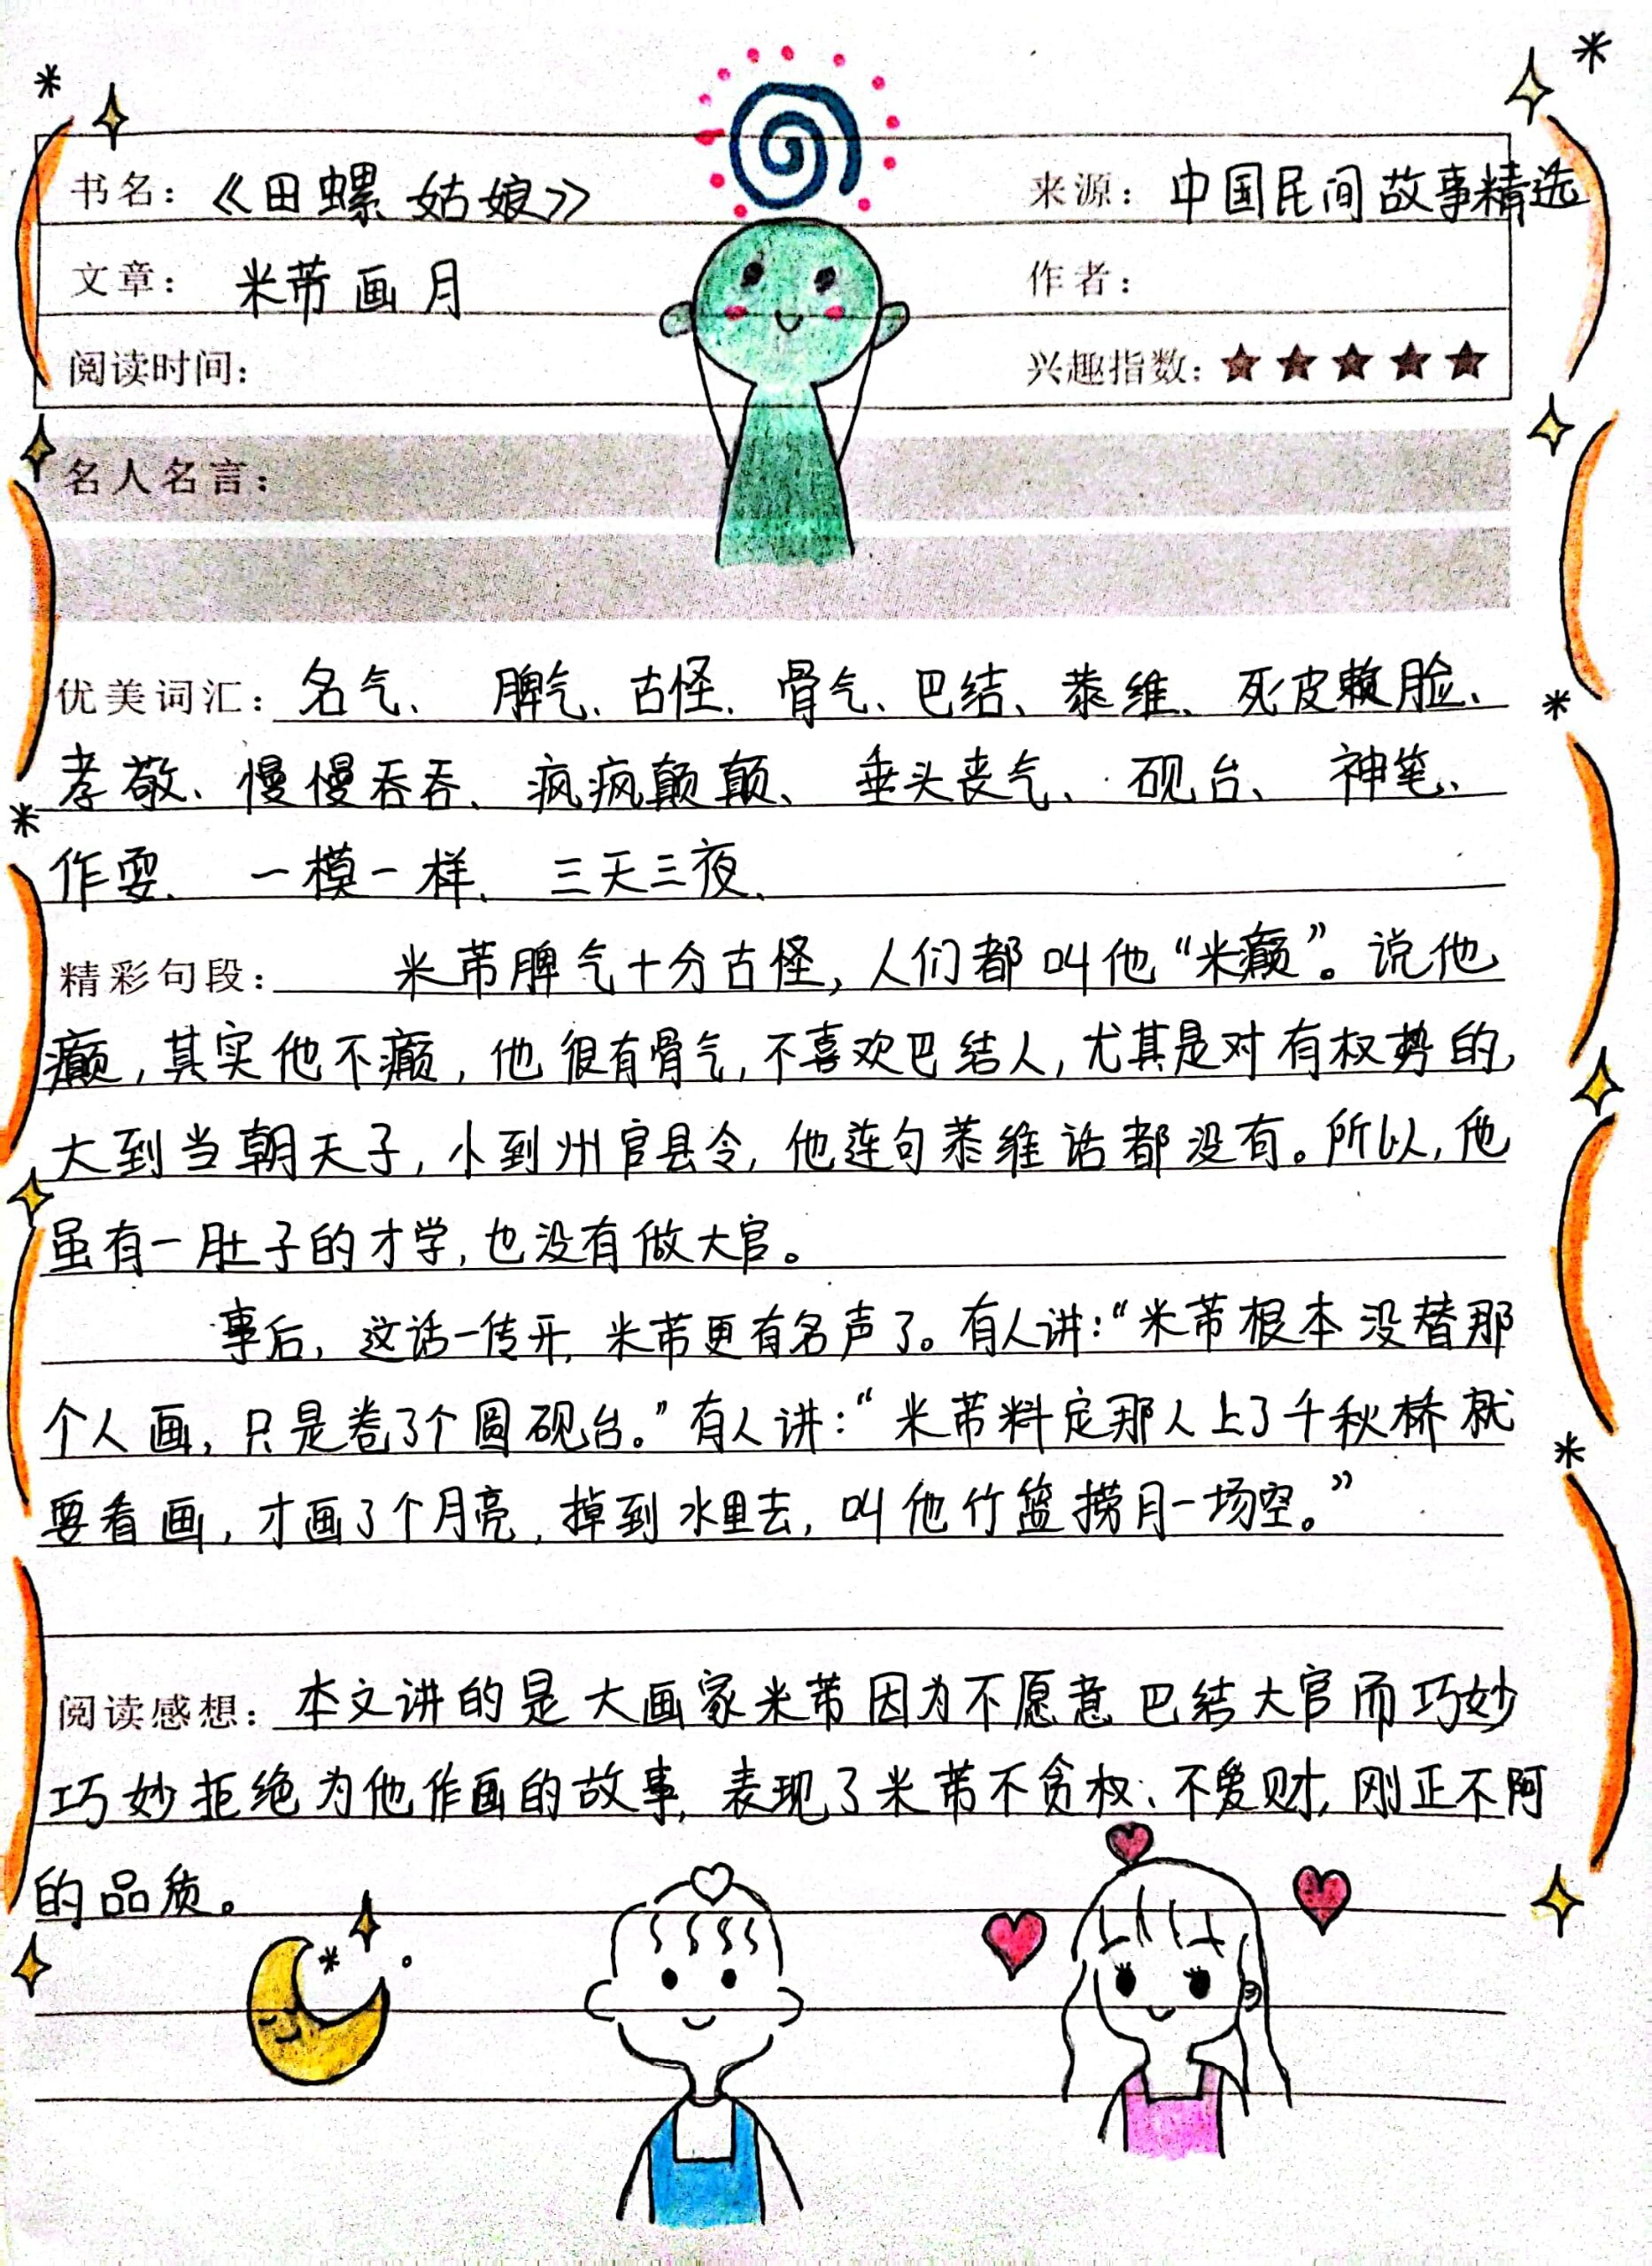 书名：《田螺姑娘》 来源：中国民间故事精选
文章：米芾画月 作者：
阅读时间： 兴趣指数：★★★★★
名人名言：
优美词汇：名气、脾气、古怪、骨气、巴结、恭维、死皮赖脸、
孝敬、慢慢吞吞、疯疯颠颠、垂头丧气、砚台、神笔、
作耍、一模一样、三天三夜、
精彩句段：米芾脾气十分古怪，人们都叫他“米癫”。说他
癫，其实他不癫，他很有骨气，不喜欢巴结人，尤其是对有权势的，
大到当朝天子，小到州官县令，他连句恭维话都没有。所以，他
虽有一肚子的才学，也没有做大官。
事后，这话一传开，米芾更有名声了。有人讲：“米芾根本没替那
个人画，只是卷了个圆砚台。”有人讲：“米芾料定那人上了千秋桥就
要看画，才画了个月亮，掉到水里去，叫他竹篮捞月一场空。”
阅读感想：本文讲的是大画家米芾因为不愿意巴结大官而巧妙
巧妙拒绝为他作画的故事，表现了米芾不贪权、不爱财，刚正不阿
的品质。